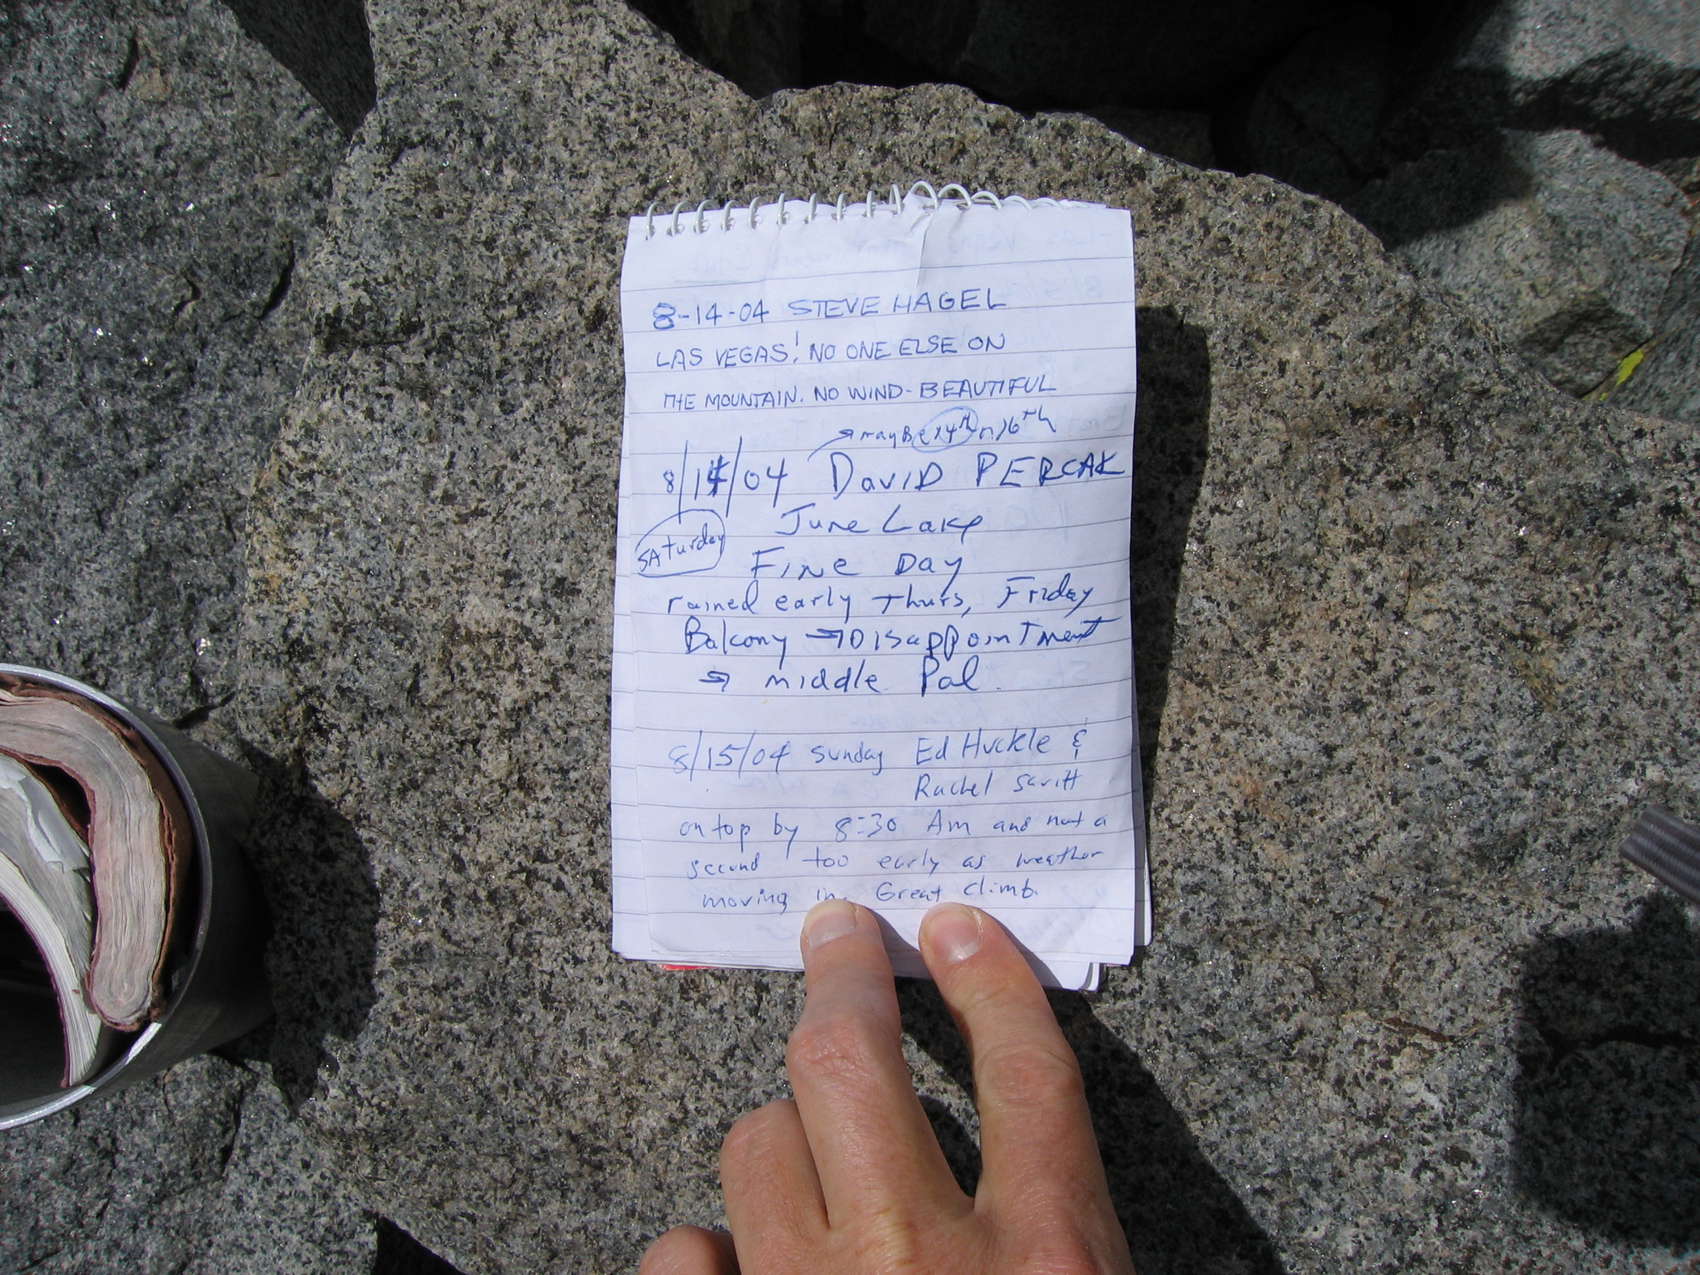 8-14-04 STEVE HAGEL
LAS VEGAS! NO ONE ELSE ON
THE MOUNTAIN. NO WIND-BEAUTIFUL
→ maybe 14th or 16th
8/14/04 DaviD PERCAK
SATurday June Lake
Fine Day
rained early Thurs, Friday
Balcony → Disappointment
→ middle Pal.
8/15/04 sunday Ed Huckle &
Rachel
on top by 8:30 Am and not a
second too early as weather
moving in. Great climb.